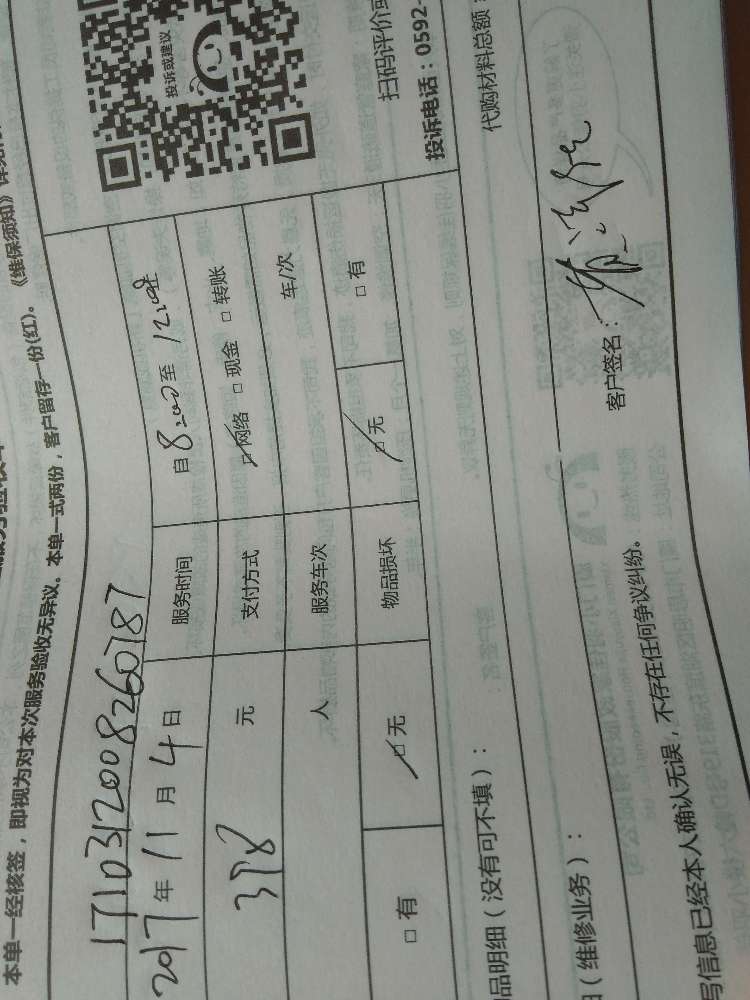 本单一经核签，即视为对本次服务验收无异议。本单一式两份，客户留存一份(红)。《维保须知》
17103120008260787
2017年11月4日 服务时间 自8:00至12:00
378元 支付方式 ☑网络 □现金 □转账
人 服务车次 车/次
□有 ☑无 物品损坏 ☑无 □有
投诉或建议
扫码评价或
投诉电话：0592-
品明细（没有可不填）：
代购材料总额：
（维修业务）：
客户签名：
写信息已经本人确认无误，不存在任何争议纠纷。